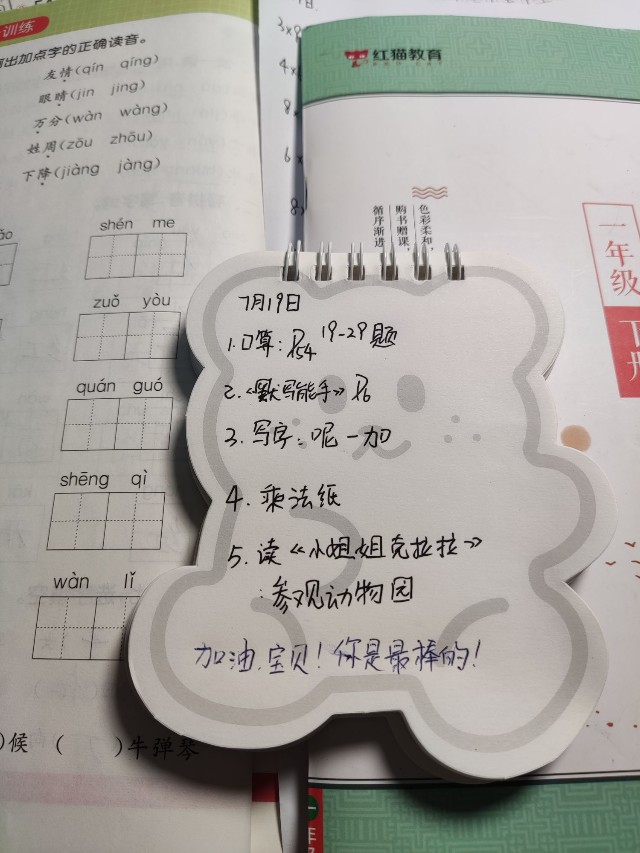 训练
出加点字的正确读音。
友情(qín qíng)
眼睛(jīn jīng)
万分(wàn wàng)
姓周(zōu zhōu)
下降(jiàng jàng)
shén me
zuǒ yòu
quán guó
shēng qì
wàn lǐ
)候 ( )牛弹琴
红猫教育
色彩柔和
购书赠课，
循序渐进
一年级
下册
7月19日
1.口算：P54 19-29题
2.《默写能手》P6
3.写字：呢一加
4.乘法纸
5.读《小姐姐克拉拉》
:参观动物园
加油,宝贝!你是最棒的!